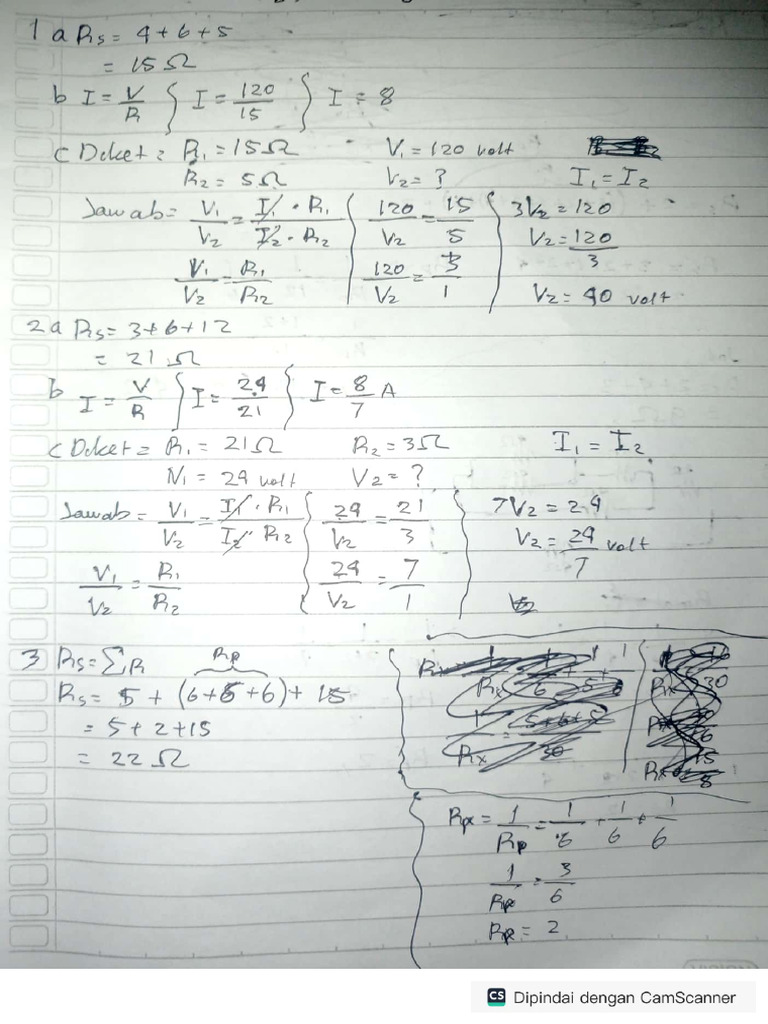 1 a Rs = 4+6+5
= 15 Ω
b I = V/R } I = 120/15 } I = 8
c Diket = R₁ = 15Ω V₁ = 120 volt
R₂ = 5Ω V₂ = ? I₁ = I₂
Jawab = V₁/V₂ = I₁ · R₁/I₂ · R₂ 120/V₂ = 15/5 3V₂ = 120
V₂ = 120/3
V₁/V₂ = R₁/R₂ 120/V₂ = 3/1 V₂ = 40 volt
2 a Rs = 3+6+12
= 21 Ω
b I = V/R } I = 24/21 } I = 8/7 A
c Diket = R₁ = 21Ω R₂ = 3Ω I₁ = I₂
V₁ = 24 volt V₂ = ?
Jawab = V₁/V₂ = I₁ · R₁/I₂ · R₂ 24/V₂ = 21/3 7V₂ = 24
V₂ = 24/7 volt
V₁/V₂ = R₁/R₂ 24/V₂ = 7/1
3 Rs = ΣR Rp
Rs = 5 + (6+6+6) + 15
= 5+2+15
= 22 Ω
Rp = 1/Rp = 1/6 + 1/6 + 1/6
1/Rp = 3/6
Rp = 2
CS Dipindai dengan CamScanner